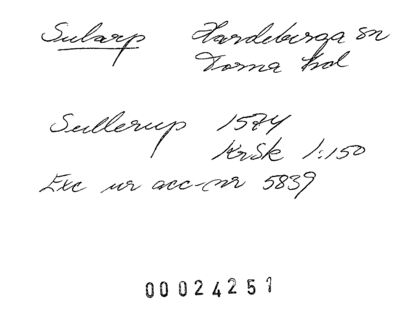 Sularp Hardeberga sn
Torna hd
Sullerup 1574
KrSk 1:150
Exc ur acc-nr 5839
00024251